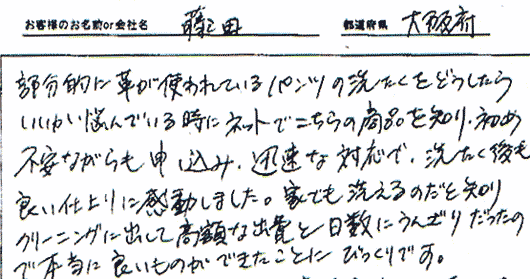 お客様のお名前or会社名 藤田 都道府県 大阪府
部分的に革が使われているパンツの洗たくをどうしたら
いいか悩んでいる時にネットでこちらの商品を知り、初め
不安ながらも申込み、迅速な対応で、洗たく後も
良い仕上りに感動しました。家でも洗えるのだと知り
クリーニングに出して高額な出費と日数にうんざりだったの
で本当に良いものができたことにびっくりです。